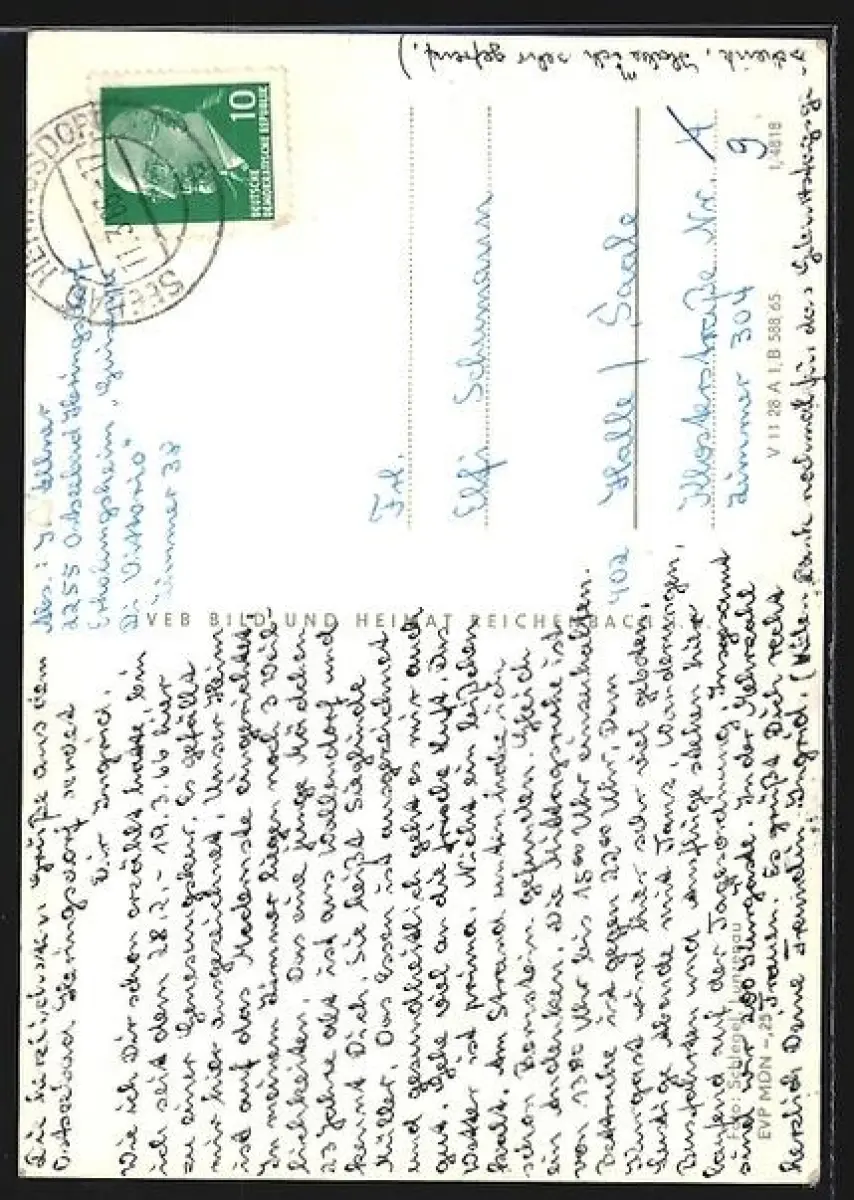 Die herzlichsten Grüße aus dem
Ostseebad Heringsdorf sendet
Dir Ingrid.
Wie ich Dir schon erzählt hatte bin
ich seit dem 28.2. - 19.3.66 hier
zu einer Genesungskur. Es gefällt
mir hier ausgezeichnet. Unser Heim
ist auf das Modernste eingerichtet.
In meinem Zimmer liegen noch 3 Weib-
lichkeiten. Das eine junge Mädchen
23 Jahre alt ist aus Wallendorf und
kennt Dich. Sie heißt Sieglinde
Müller. Das Essen ist ausgezeichnet
und gesundheitlich geht es mir auch
gut. Gehe viel an die frische Luft. Das
Wetter ist prima. Nicht ein bißchen
kalt. Am Strand unten habe ich
schon Bernstein gefunden. Gleich
ein Andenken. Die Mittagsruhe ist
von 13⁰⁰ Uhr bis 15⁰⁰ Uhr einzuhalten.
Bettruhe ist gegen 22⁰⁰ Uhr. Dem
Kurgast wird hier sehr viel geboten.
Lustige Abende mit Tanz, Wanderungen,
Busfahrten und Ausflüge stehen hier
laufend auf der Tagesordnung. Insgesamt
sind wir 200 Kurgäste. In der Mehrzahl
Frauen. Es grüßt Dich recht
herzlich Deine Freundin Ingrid. (Vielen Dank nochmal für das Geburtstagsge-
schenk. Habe mich sehr gefreut.)
Foto: Schlegel,
EVP MDN -,25
VEB BILD UND HEIMAT REICHENBACH i. V.
Abs.: I.
2255 Ostseebad Heringsdorf
Erholungsheim "Guiseppe
Di Vittorio"
Zimmer 38
SEEBAD HERINGSDORF
10
DEUTSCHE
DEMOKRATISCHE REPUBLIK
Frl.
Elfi Schumann
402 Halle / Saale
Klosterstraße Nr. 4
9
Zimmer 304
V 11 28 A 1, B 588/65
1,4818